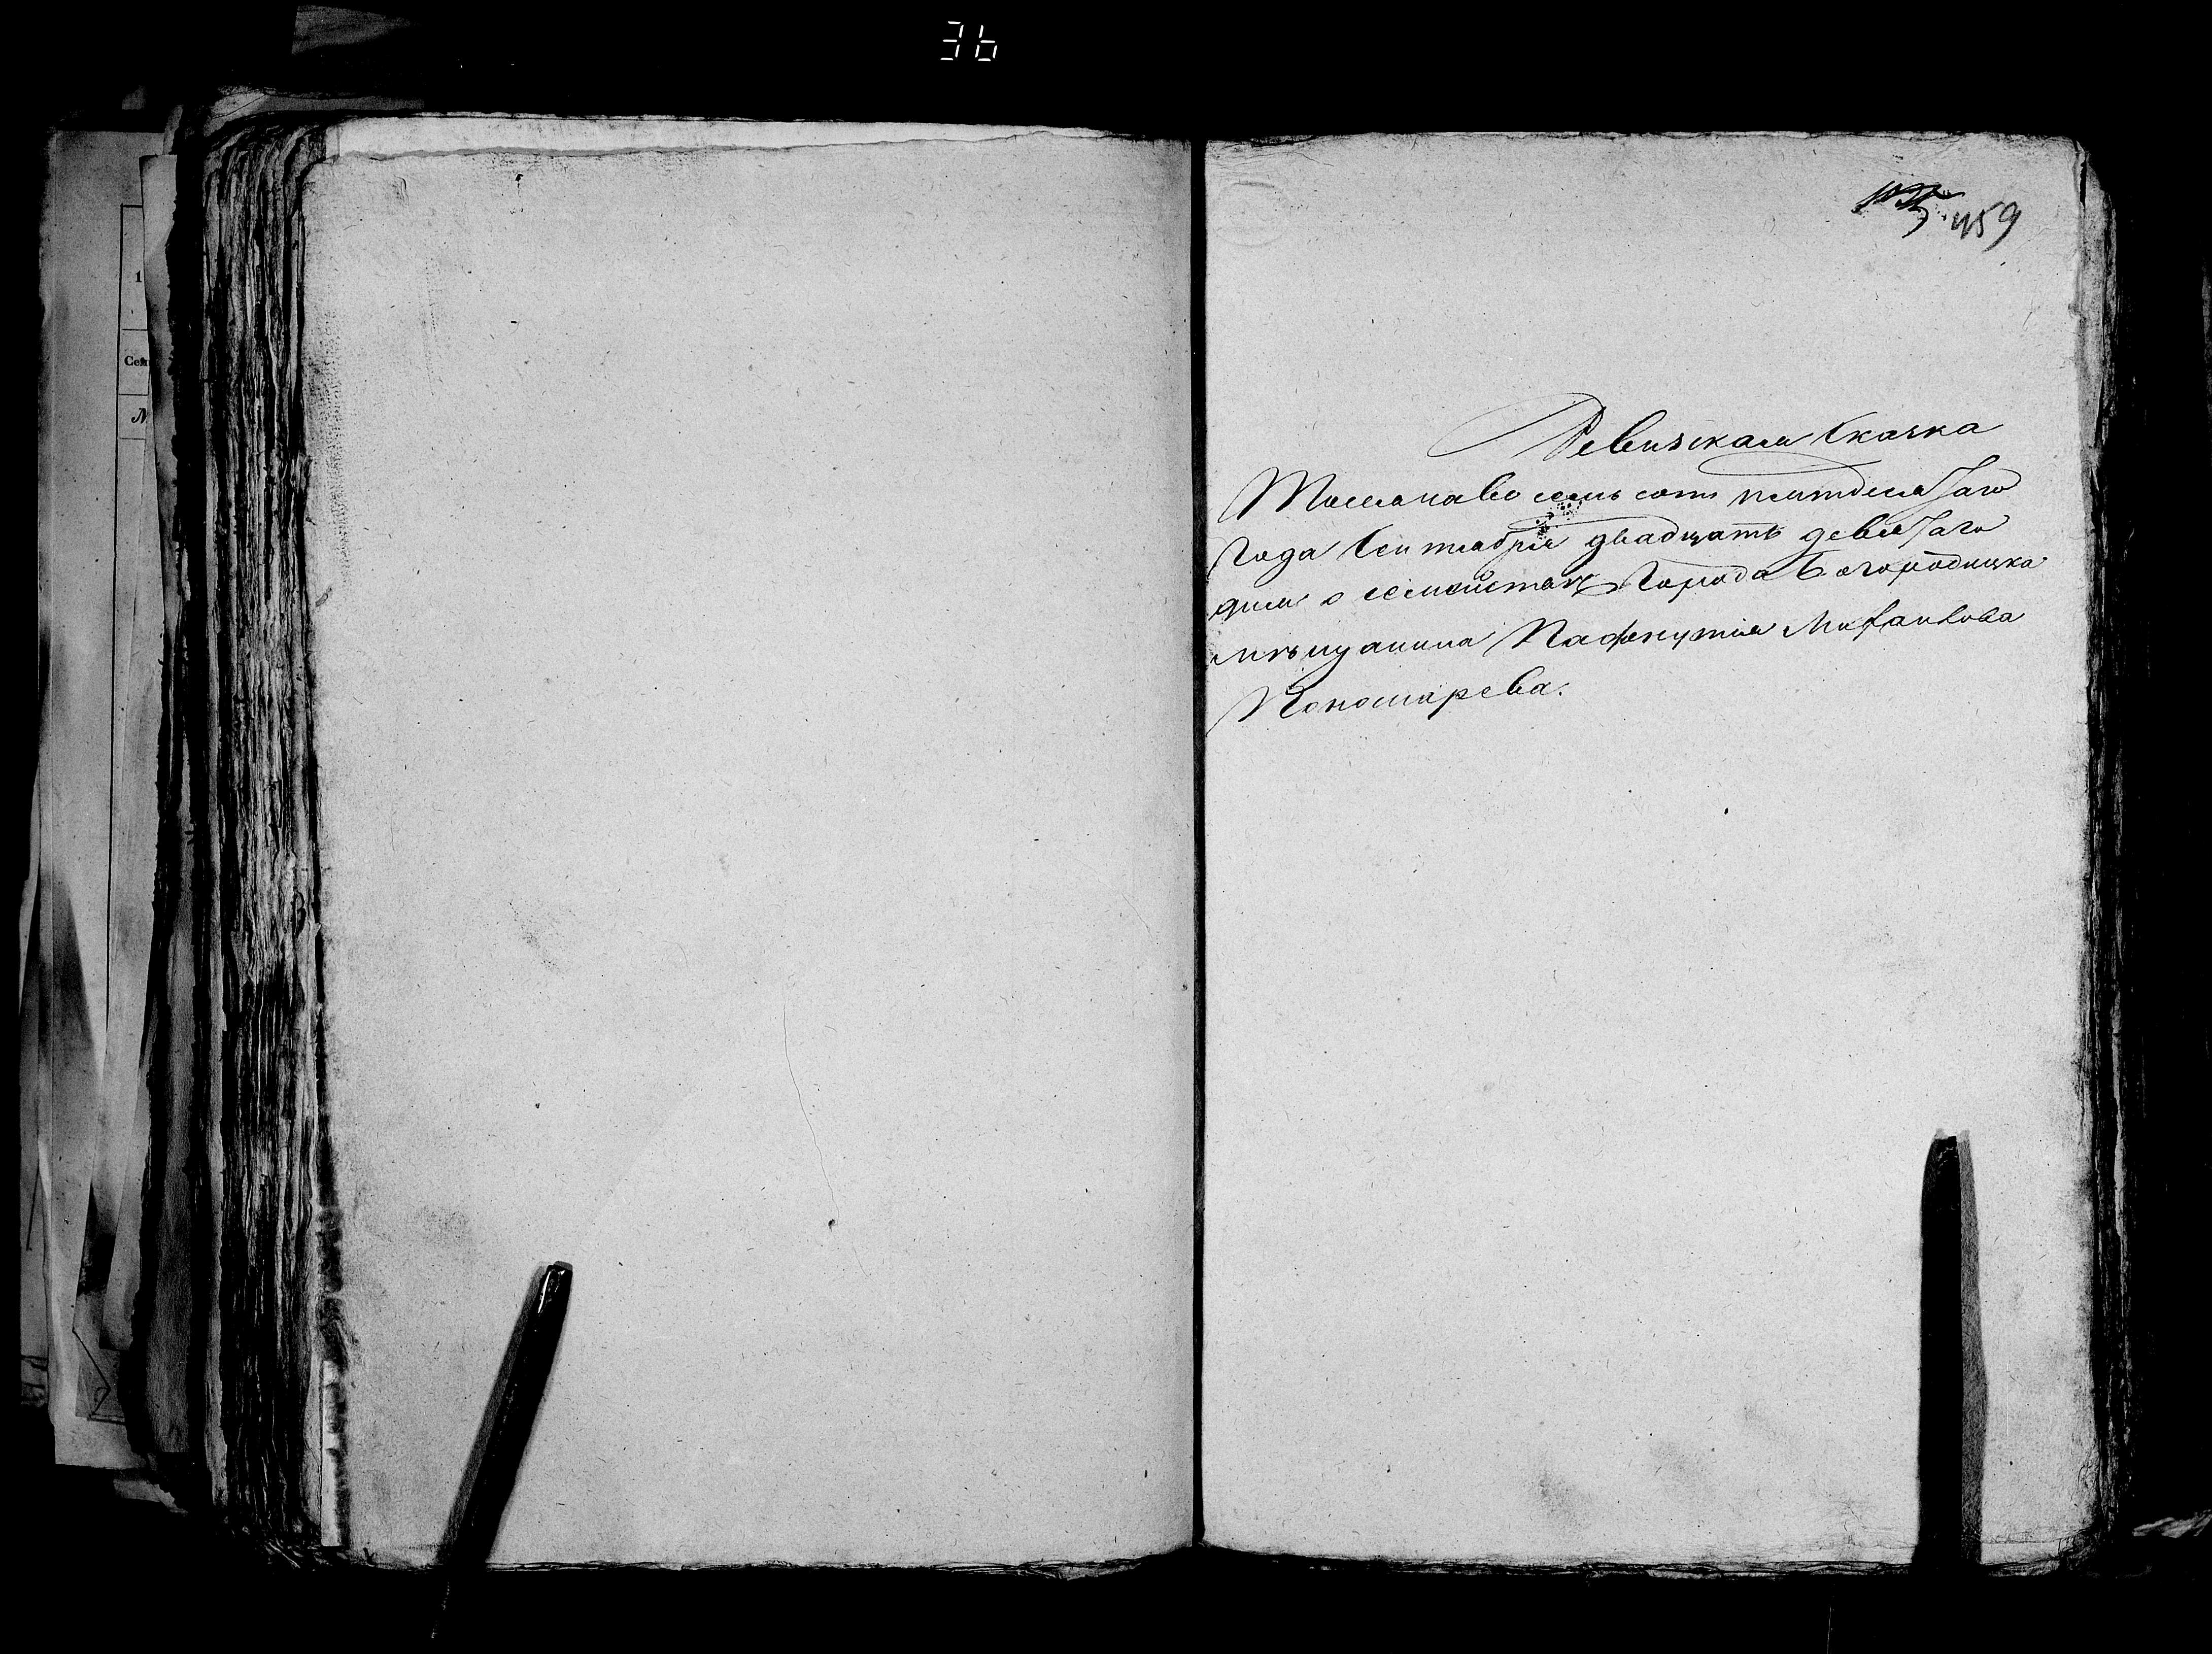 36
459
Ревизская Сказка
Тысяча во семь сотъ пятидесятаго
Года Сентября двадцать девятаго
дня о семействѣ Города Богородицка
мѣщанина Пафнутия Михаилова
Пономарева.
1
Сем
№